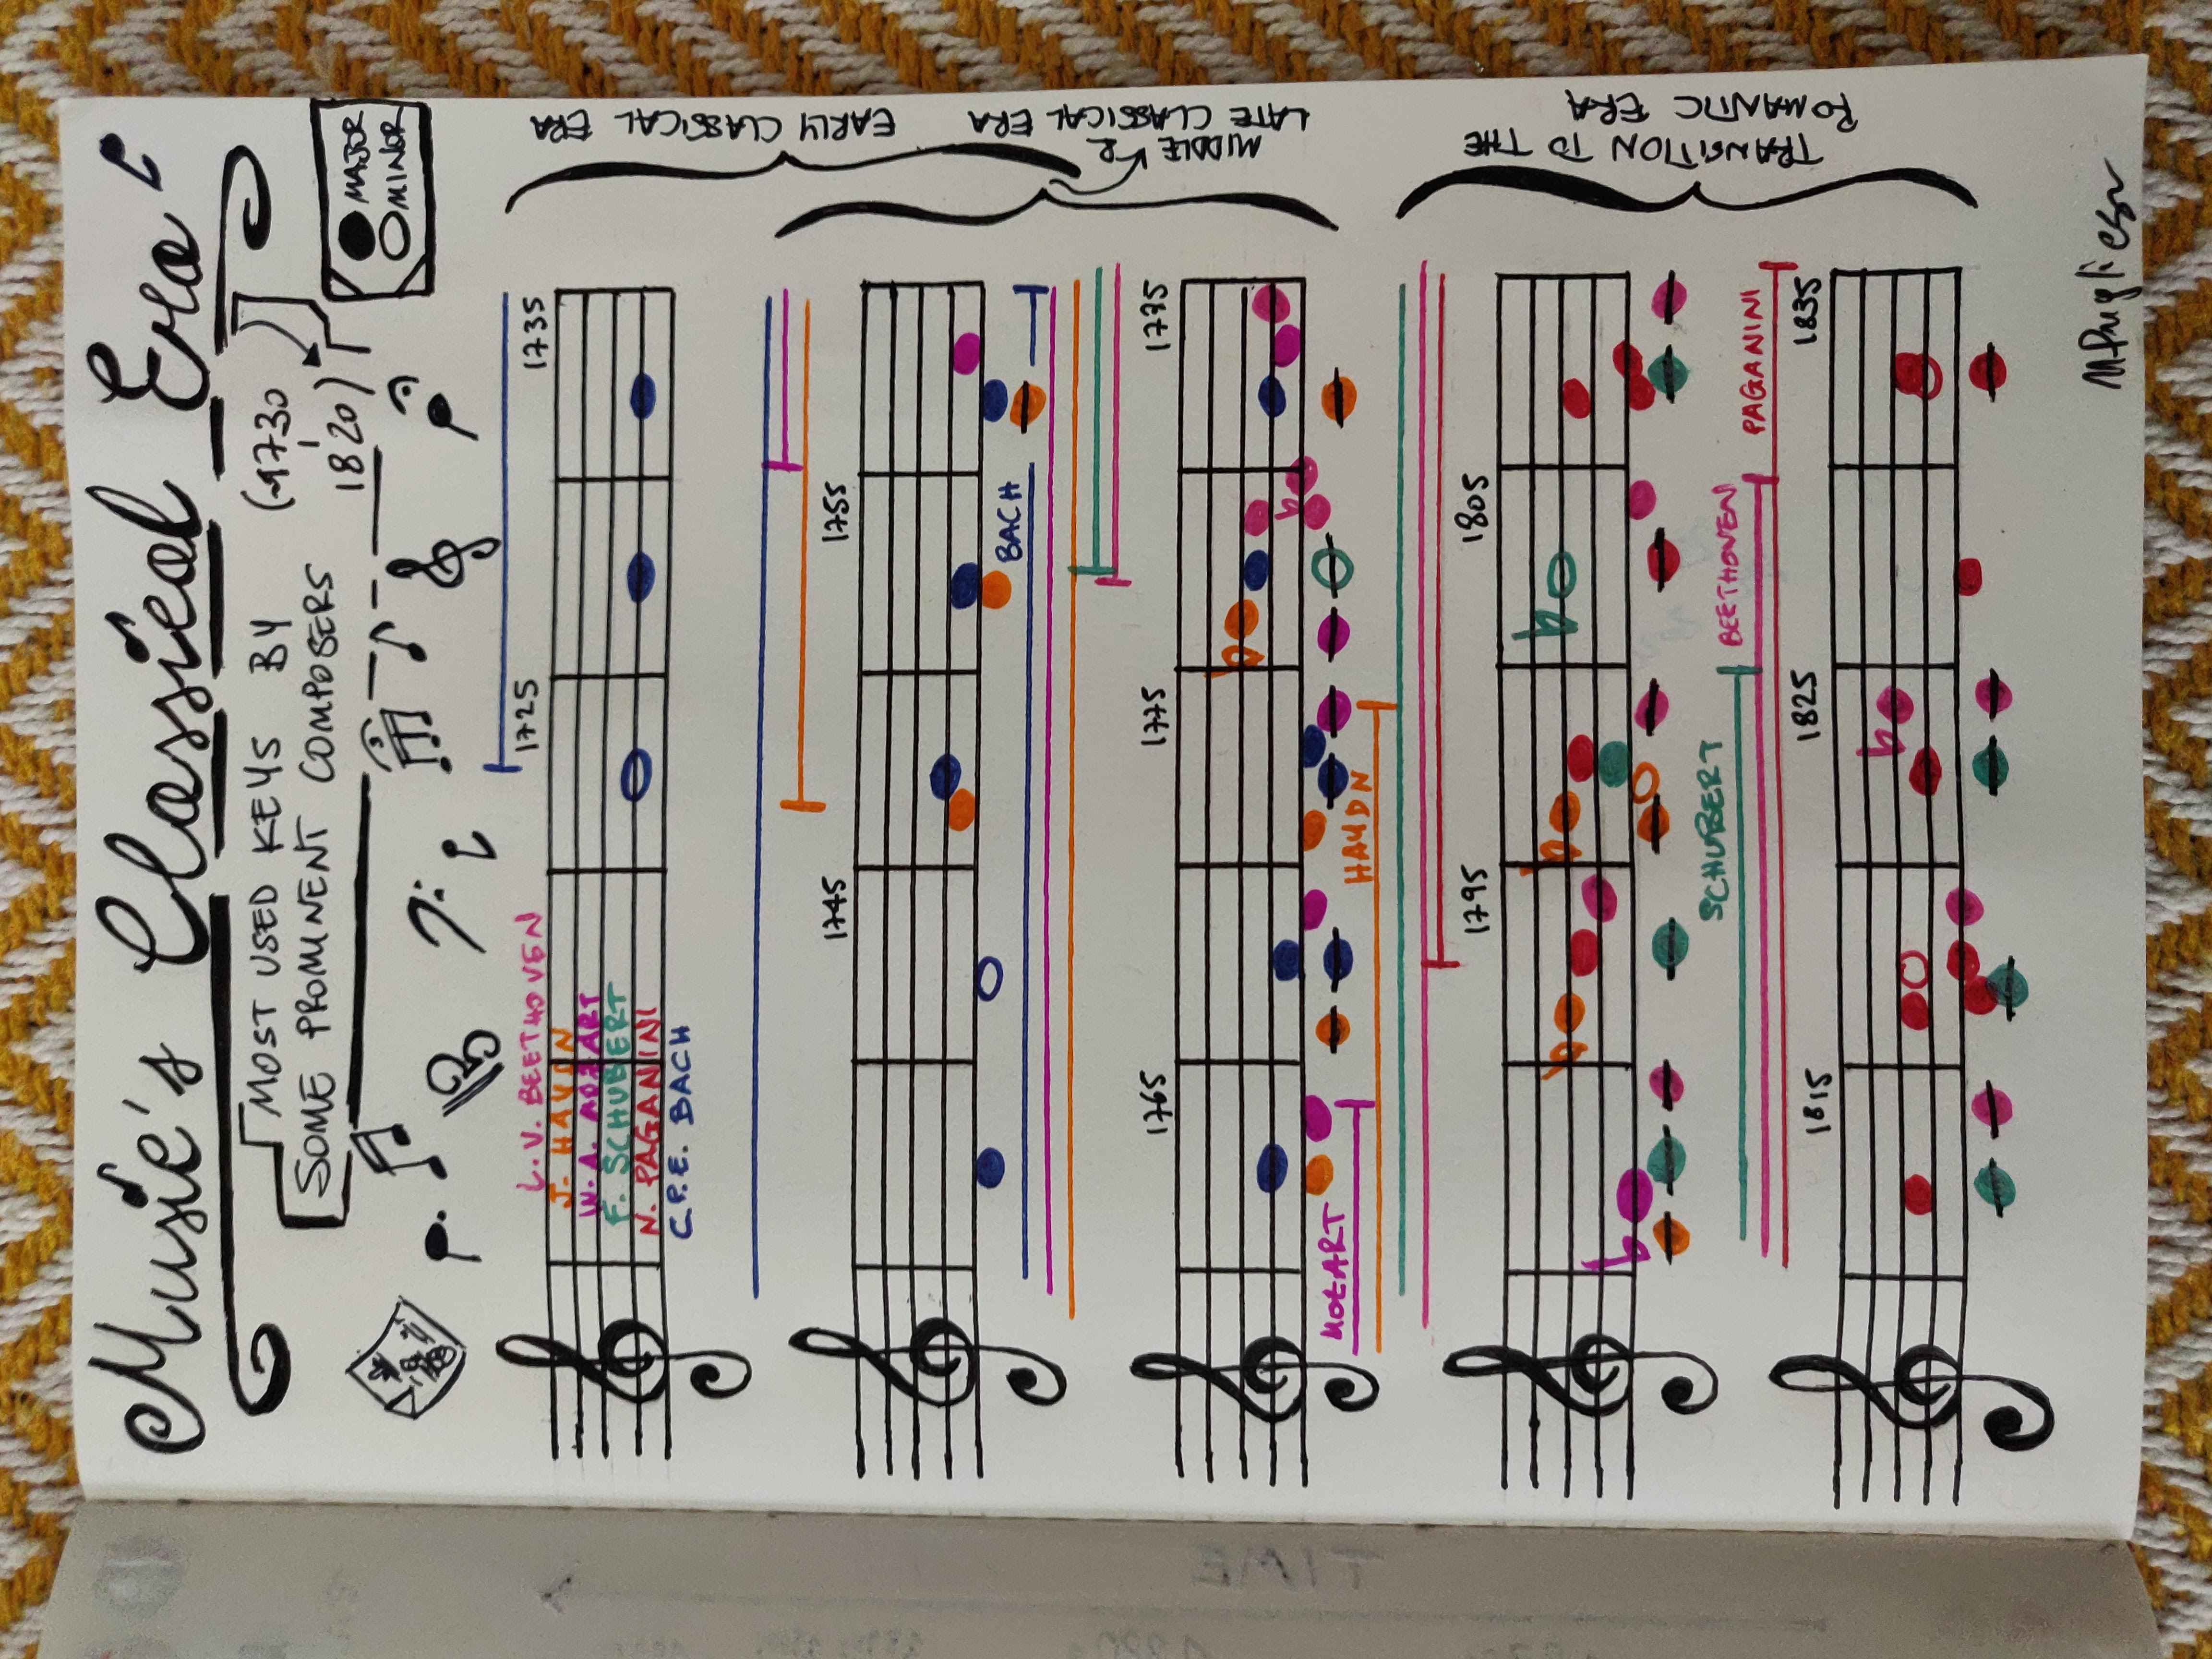 Music's Classical Era
MOST USED KEYS BY
SOME PROMINENT COMPOSERS
(~1730
-
1820)
MAJOR
MINOR
3
1725
1735
L. V. BEETHOVEN
J. HAYDN
W. A. MOZART
F. SCHUBERT
N. PAGANINI
C.P.E. BACH
EARLY CLASSICAL ERA
1745
1755
BACH
MIDDLE &
LATE CLASSICAL ERA
1765
1775
1775
MOZART
HAYDN
1795
1805
TRANSITION TO THE
ROMANTIC ERA
SCHUBERT
BEETHOVEN
PAGANINI
1815
1825
1835
MPugliese